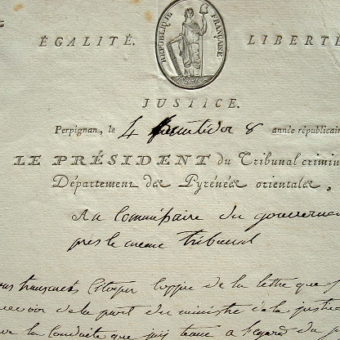 RÉPUBLIQUE FRANÇAISE
ÉGALITÉ. LIBERTÉ
JUSTICE.
Perpignan, le 4 fructidor 8 année républicain
LE PRÉSIDENT du Tribunal crimin
Département des Pyrénées orientales,
Au Commissaire du gouvernem
près le meme tribunal
ous transmets Citoyen Coppie de la lettre que
cevoir de la part du ministre de la justice
la Conduite que j'ai tenue a l'egard du